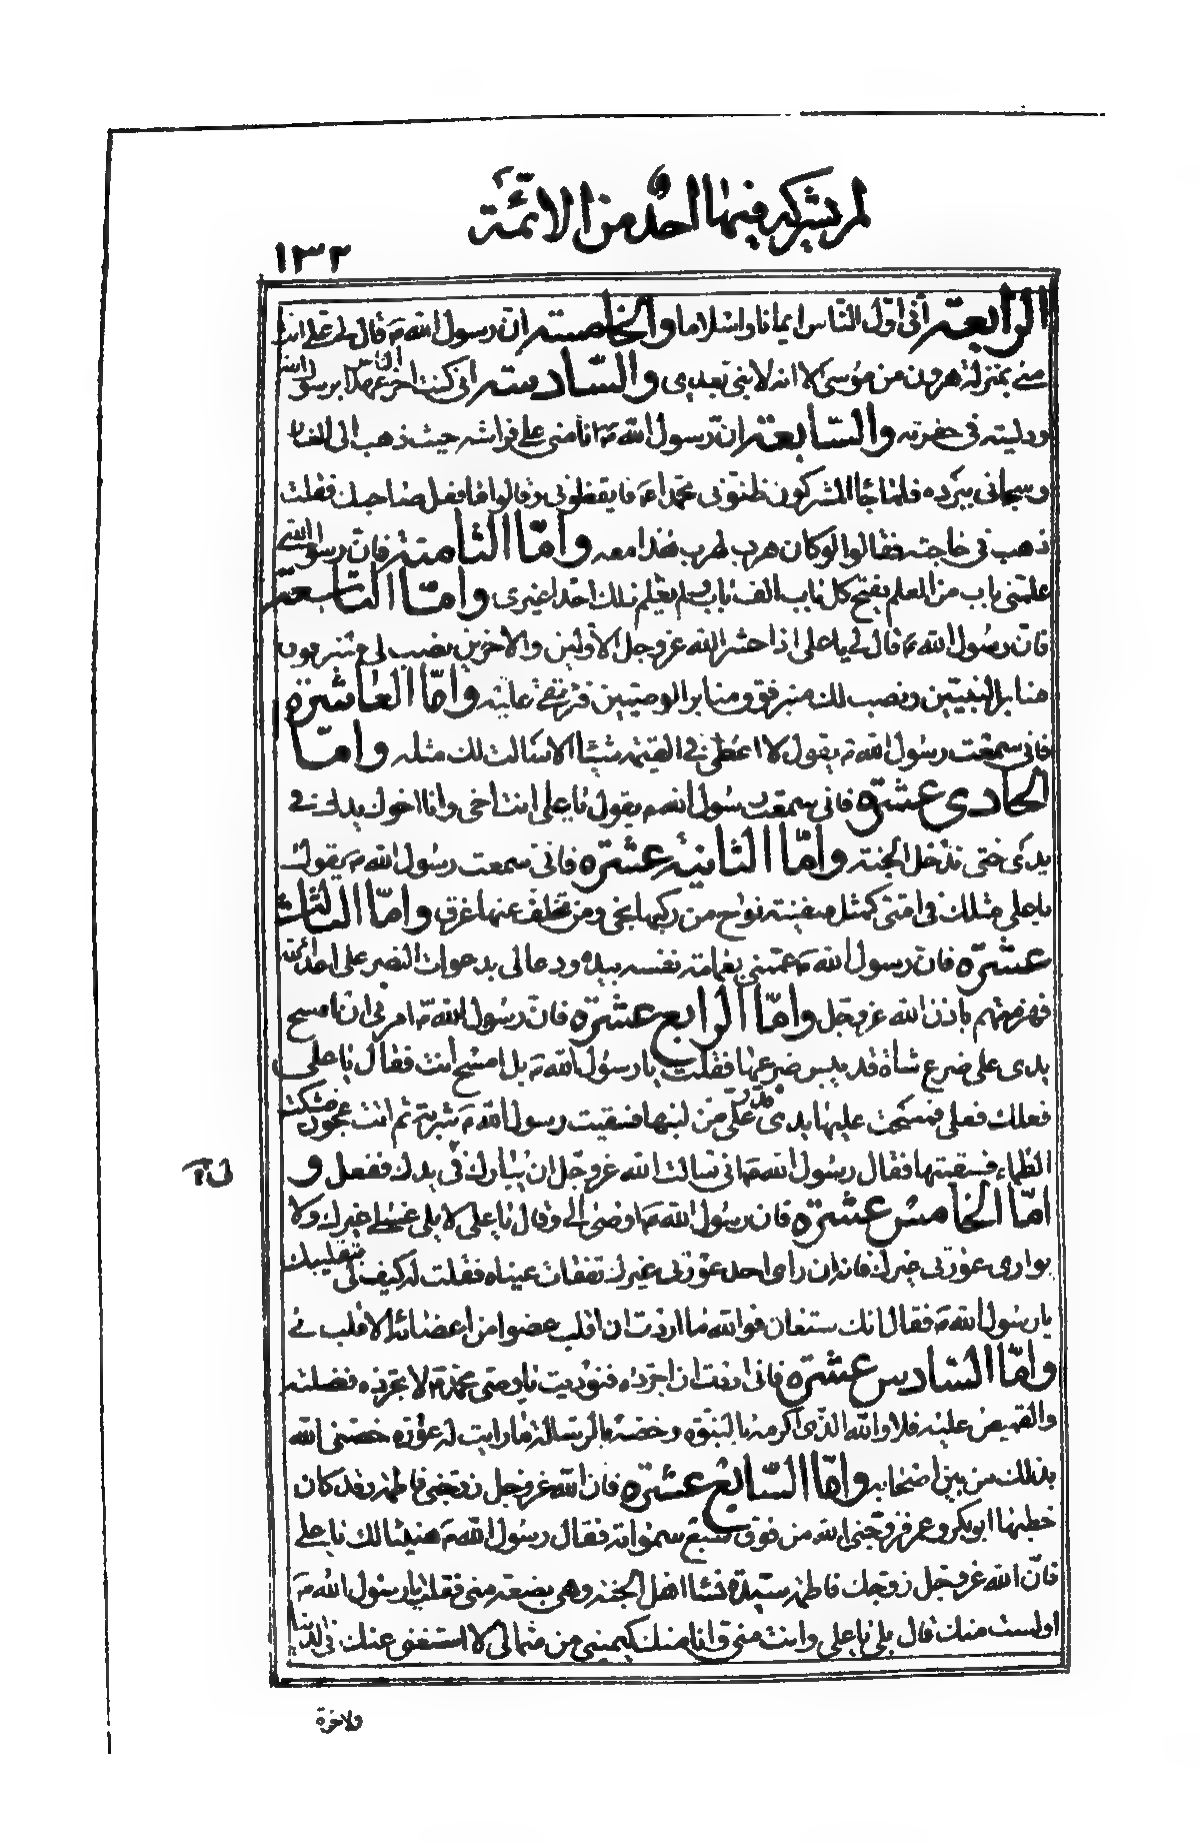 لم يشركه فيها احد من الائمة
١٣٢
الرابعة أنى اول الناس ايمانا واسلاما والخامسة ان رسول الله ص قال لى يا على انت
منى بمنزلة هرون من موسى الا انه لا نبى بعدى والسادسة انى كنت اخر الناس عهدا برسول الله
ودليته فى حفرته والسابعة ان رسول الله ص انامنى على فراشه حيث ذهب الى الغار
وسجانى ببرده فلما جاء المشركون ظنونى محمدا ص فايقظونى وقالوا ما فعل صاحبك فقلت
ذهب فى حاجته فقالوا لو كان هرب لهرب هذا معه واما الثامنة فان رسول الله
علمنى باب من العلم يفتح كل باب الف باب ولم يعلم ذلك احدا غيرى واما التاسعة
فان رسول الله ص قال لى يا على اذا حشر الله عز وجل الاولين والاخرين نصب لى منبر فوق
منابر النبيين ونصب لك منبر فوق منابر الوصيين فترتقى عليه واما العاشرة
فانى سمعت رسول الله ص يقول لا اعطى فى القيمة شيئا الا سالت لك مثله واما
الحادى عشرة فانى سمعت رسول الله ص يقول يا على انت اخى وانا اخوك يدك فى
يدى حتى ندخل الجنة واما الثانية عشرة فانى سمعت رسول الله ص يقول
يا على مثلك فى امتى كمثل سفينة نوح من ركبها نجى ومن تخلف عنها غرق واما الثالث
عشرة فان رسول الله ص عممنى بعمامة نفسه بيده ودعا لى بدعوات النصر على اعداء الله
فهزمتهم باذن الله عز وجل واما الرابع عشرة فان رسول الله ص امرنى ان امسح
يدى على ضرع شاة قد يبس ضرعها فقلت يا رسول الله ص بل امسح انت فقال يا على
فعلك فعلى فمسحت عليها يدى فدر على من لبنها فسقيت رسول الله ص شربة ثم اتت عجوز فشكت
الظماء فسقيتها فقال رسول الله ص انى سالت الله عز وجل ان يبارك فى يدك ففعل و
اما الخامس عشرة فان رسول الله ص اوصى الى وقال يا على لا يلى غسلى غيرك ولا
يوارى عورتى غيرك فانه ان راى احد عورتى غيرك تفقات عيناه فقلت له كيف لى بتقليبك
يا رسول الله ص فقال انك ستعان فو الله ما اردت ان اقلب عضوا من اعضائه الا قلب لى
واما السادس عشرة فانى اردت ان اجرده فنوديت يا وصى محمد ص لا تجرده فغسلته
والقميص عليه فلا والله الذى اكرمه بالنبوة وخصه بالرسالة ما رايت له عورة خصنى الله
بذلك من بين اصحابه واما السابع عشرة فان الله عز وجل زوجنى فاطمة وقد كان
خطبها ابو بكر وعمر فزوجنى الله من فوق سبع سمواته فقال رسول الله ص هنيئا لك يا على
فان الله عز وجل زوجك فاطمة سيدة نساء اهل الجنة وهى بضعة منى فقلت يا رسول الله ص
اولست منك قال بلى يا على وانت منى وانا منك كيمينى من شمالى لا استغنى عنك فى الدنيا
ولاخرة